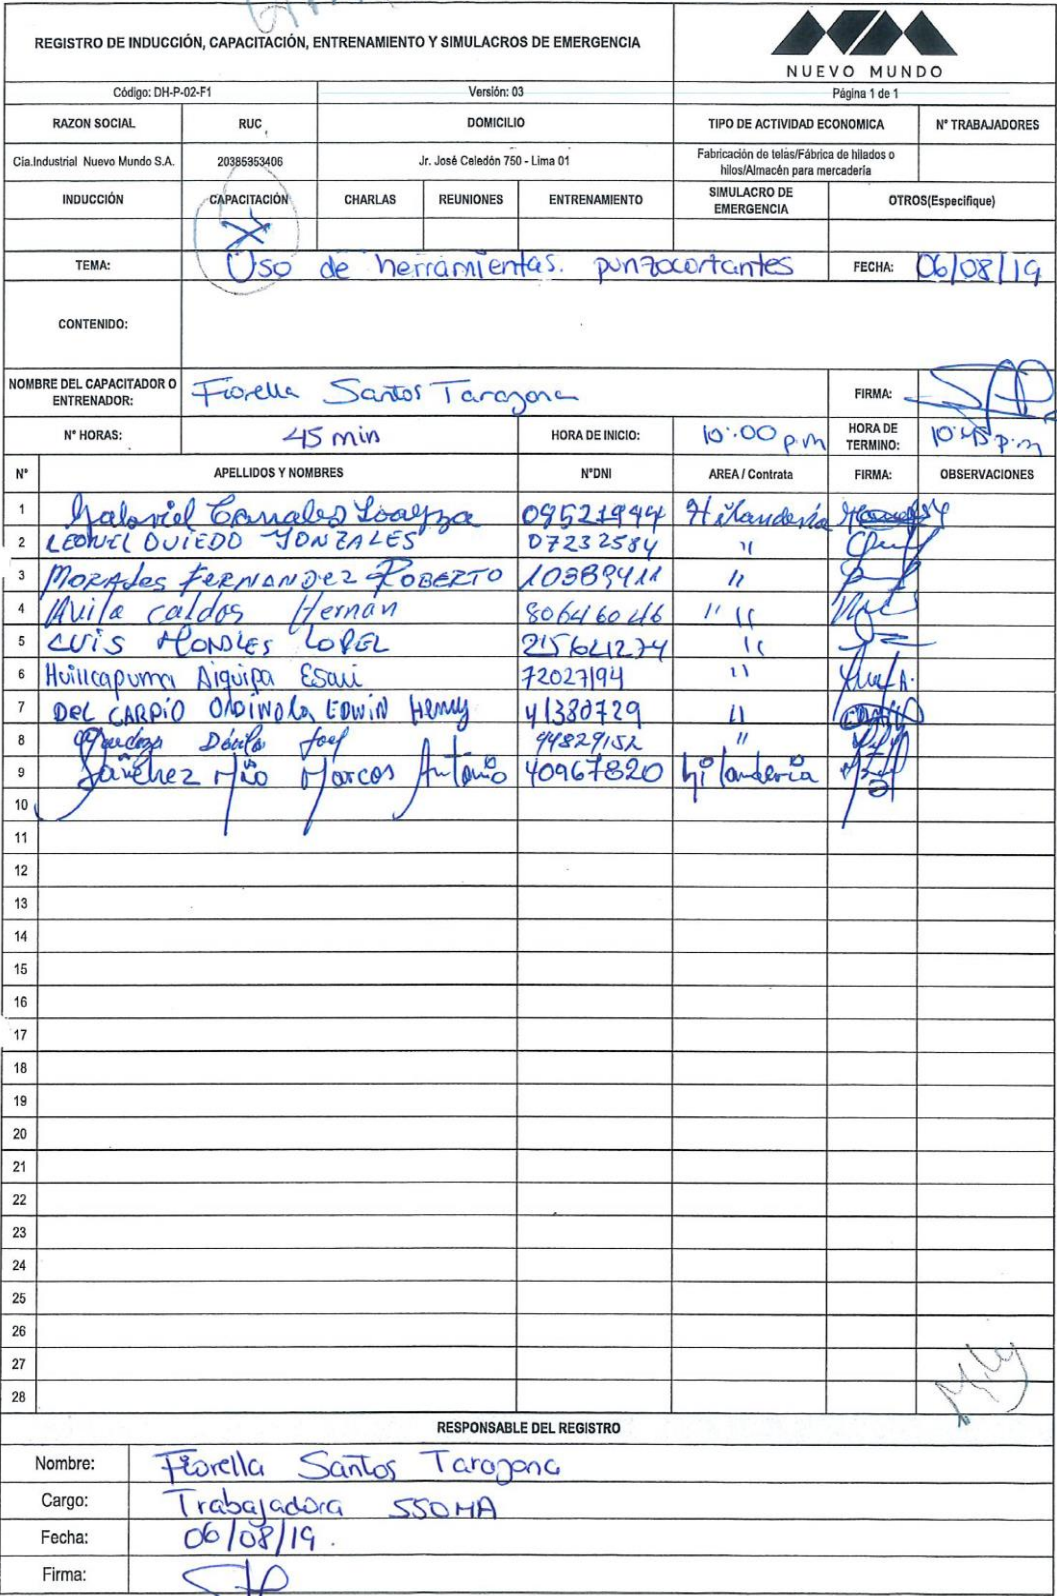 REGISTRO DE INDUCCIÓN, CAPACITACIÓN, ENTRENAMIENTO Y SIMULACROS DE EMERGENCIA
NUEVO MUNDO
Código: DH-P-02-F1 Versión: 03 Página 1 de 1
RAZON SOCIAL RUC DOMICILIO TIPO DE ACTIVIDAD ECONOMICA N° TRABAJADORES
Cia.Industrial Nuevo Mundo S.A. 20385353406 Jr. José Celedón 750 - Lima 01 Fabricación de telas/Fábrica de hilados o hilos/Almacén para mercadería
INDUCCIÓN CAPACITACIÓN CHARLAS REUNIONES ENTRENAMIENTO SIMULACRO DE EMERGENCIA OTROS(Especifique)
X
TEMA: Uso de herramientas. punzocortantes FECHA: 06/08/19
CONTENIDO:
NOMBRE DEL CAPACITADOR O ENTRENADOR: Fiorella Santos Tarazona FIRMA:
N° HORAS: 45 min HORA DE INICIO: 10:00 p.m HORA DE TERMINO: 10:45 p.m
N° APELLIDOS Y NOMBRES N°DNI AREA / Contrata FIRMA: OBSERVACIONES
1 Gabriel Canales Loayza 09521944 Hilandería
2 LEONUEL OVIEDO GONZALES 07232584 "
3 MORALES FERNANDEZ ROBERTO 10389411 "
4 Avila caldas Hernan 80646046 " "
5 LUIS LOPEZ "
6 Huillcapuma Aiquipa Esau 72027194 "
7 DEL CARPIO ORDINOLA EDWIN Henry 41380729 "
8 Mendoza Dávila Joel 44829152 "
9 Sánchez Mio Marcos Antonio 40967820 hilanderia
10
11
12
13
14
15
16
17
18
19
20
21
22
23
24
25
26
27
28
RESPONSABLE DEL REGISTRO
Nombre: Fiorella Santos Tarazona
Cargo: Trabajadora SSOMA
Fecha: 06/08/19.
Firma: